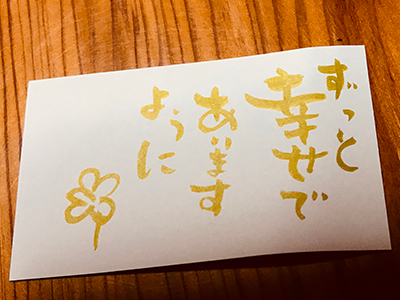 ずっと
幸せで
あります
ように